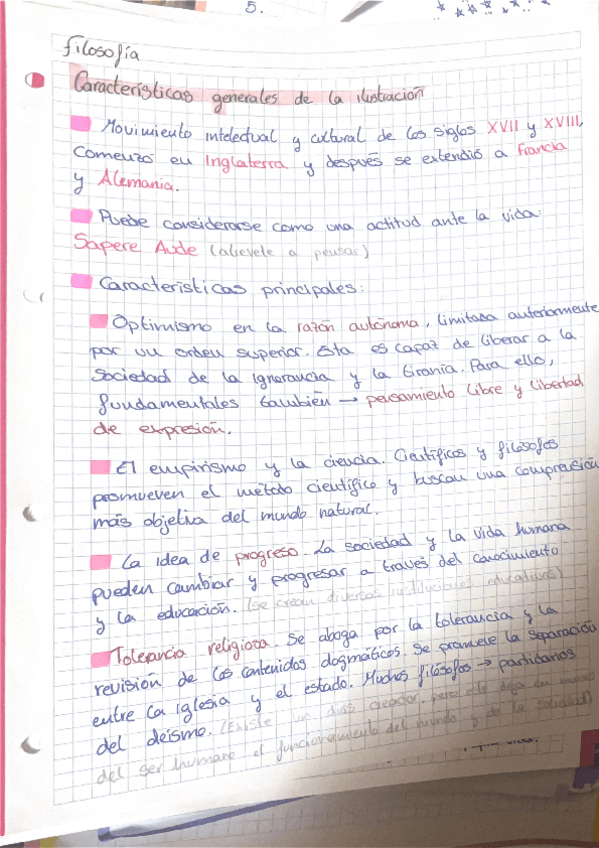 5.
Filosofía
Características generales de la ilustración
Movimiento intelectual y cultural de los siglos XVII y XVIII,
comenzó en Inglaterra y después se extendió a Francia
y Alemania.
Puede considerarse como una actitud ante la vida:
Sapere Aude (atrevete a pensar)
Características principales:
Optimismo en la razón autónoma, limitada anteriormente
por un orden superior. Esta es capaz de liberar a la
sociedad de la ignorancia y la tiranía. Para ello,
fundamentales también → pensamiento libre y libertad
de expresión.
El empirismo y la ciencia. Científicos y filósofos
promueven el método científico y buscan una comprensión
más objetiva del mundo natural.
La idea de progreso. La sociedad y la vida humana
pueden cambiar y progresar a través del conocimiento
y la educación. (se crean diversas instituciones educativas)
Tolerancia religiosa. Se aboga por la tolerancia y la
revisión de los contenidos dogmáticos. Se promueve la separación
entre la iglesia y el estado. Muchos filósofos → partidarios
del deísmo. (Existe un dios creador, pero este deja en manos
del ser humano el funcionamiento del mundo y de la sociedad)